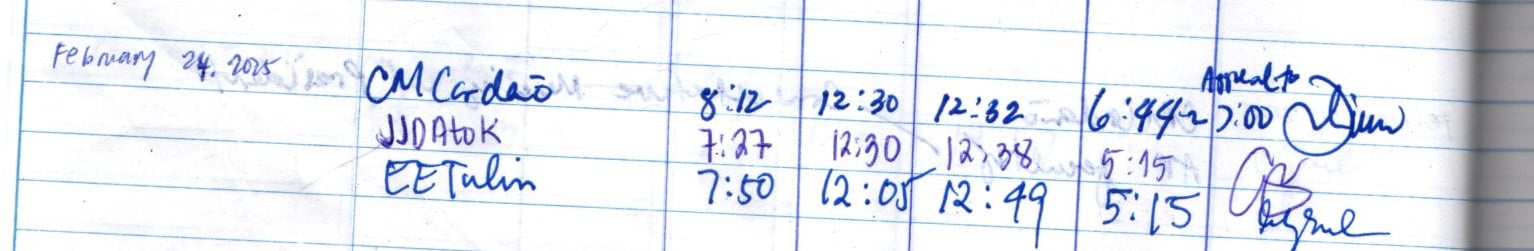 February 24, 2025
CMCardaño 8:12 12:30 12:32 6:44 Appeal to 7:00
JJDAtok 7:27 12:30 12:38 5:15
EETulin 7:50 12:05 12:49 5:15